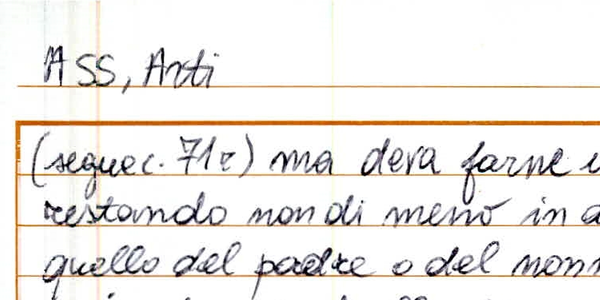 ASS, Arti
(segue c. 71r) ma deva farne
restando non di meno in
quello del padre o del